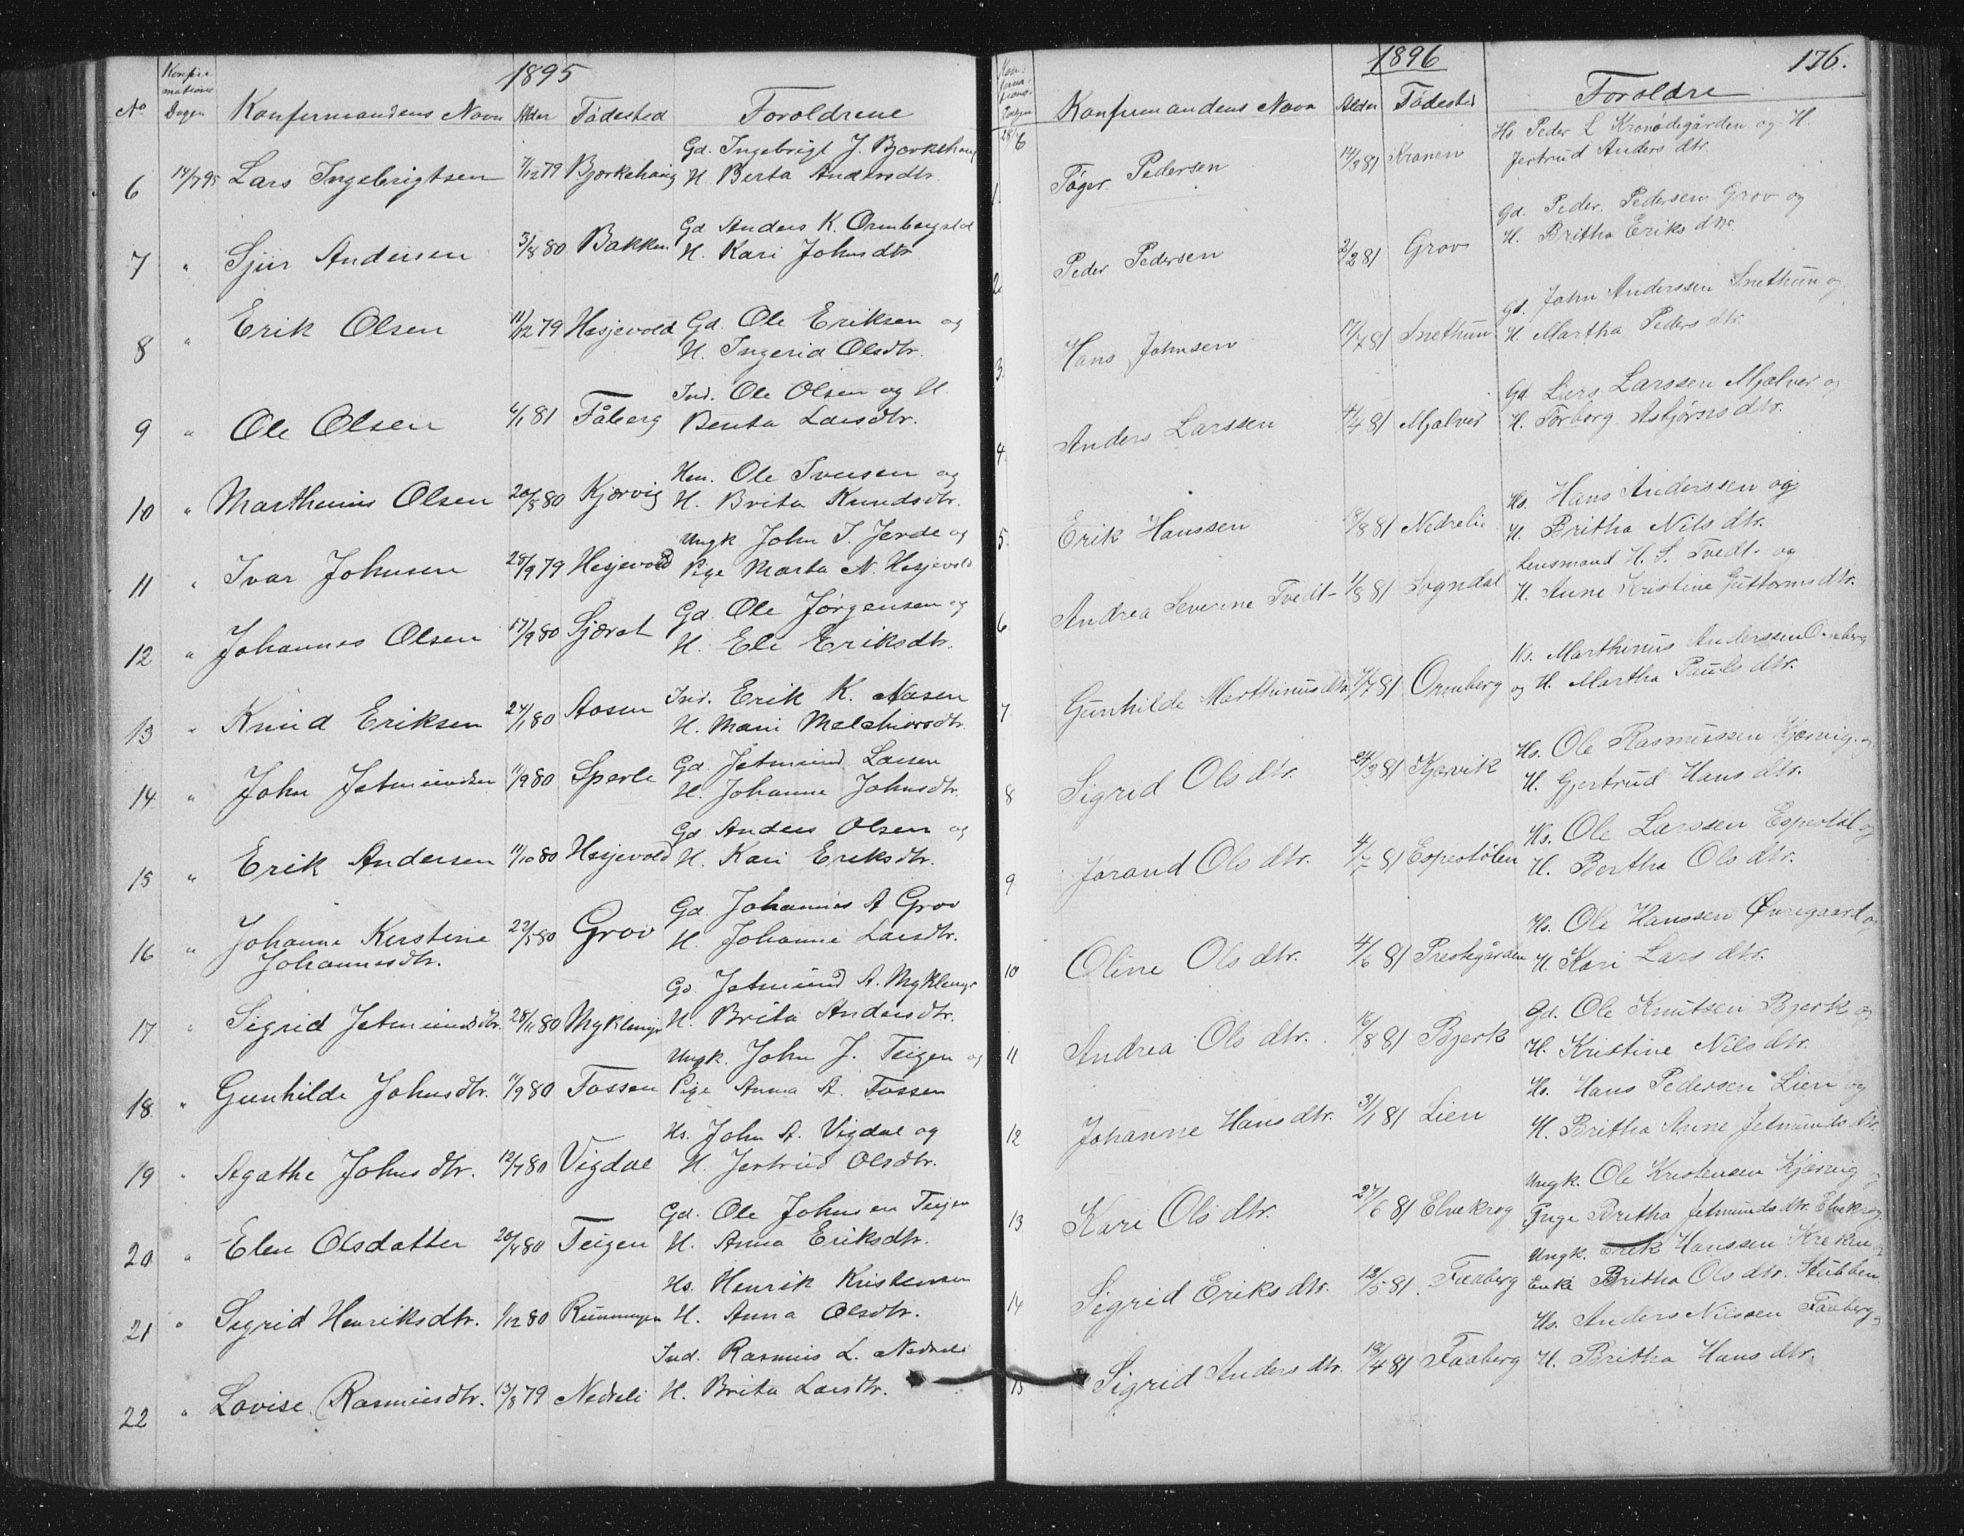 1895
No Konfir- mations Dagen Konfermandens Navn Alder Födested Foroldrene
6 14/7 95 Lars Ingebrigtsen 7/12 79 Bjørkehaug Gd. Ingebrigt J. Bjørkehaug
H. Berta Andersdtr.
7 " Sjur Andersen 3/8 80 Bakken Gd Anders K. Ormbergstøl
H. Kari Johnsdtr
8 " Erik Olsen 11/12 79 Hesjevold Gd. Ole Eriksen og
H. Ingerid Olsdtr.
9 " Ole Olsen 6/1 81 Fåberg Ind. Ole Olsen og H.
Benta Larsdtr.
10 " Marthinus Olsen 20/5 80 Kjørvig Hm. Ole Iversen og
H. Brita Knudsdtr.
11 " Ivar Johnsen 28/9 79 Hesjevold Ungk John I. Jerde og
Pige Marta N. Hesjevold
12 " Johannes Olsen 17/9 80 Sjæret Gd Ole Jørgensen og
H. Eli Eriksdtr.
13 " Knud Eriksen 27/1 80 Aasen Ind. Erik K. Aasen
H. Mari Melchiorsdtr.
14 " John Jetmundsen 11/9 80 Sperle Gd. Jetmund Larsen
H. Johanne Johnsdtr.
15 " Erik Andersen 11/10 80 Hesjevold Gd Anders Olsen og
H. Kari Eriksdtr.
16 " Johanne Kirstine 22/5 80 Grov Gd. Johannes A Grov
Johannesdtr. H. Johanne Larsdtr.
17 " Sigrid Jetmundsdtr. 28/11 80 Myklemyr Gd. Jetmund A. Myklemyr
H. Brita Andersdtr.
18 " Gunhilde Johnsdtr. 11/9 80 Fossen Ungk. John J. Teigen og
Pige Anna A. Fossen
19 " Agathe Johnsdtr. 12/7 80 Vigdal Hs. John A. Vigdal og
H. Jertrud Olsdtr.
20 " Elen Olsdatter 20/4 80 Teigen Gd. Ole Johnsen Teigen
H. Anna Eriksdtr.
21 " Sigrid Henriksdtr. 1/12 80 Hs. Henrik Kristensen
H. Anna Olsdtr.
22 " Lovise Rasmusdtr. 13/8 79 Nedreli Ind. Rasmus L. Nedreli
H. Brita Larsdtr.
1896 176.
Konfirmandens Navn Alder Fødested Foroldre
28/6
1. Tøger Pedersen 14/3 81 Kronen Hs Peder L Kronødegården og H.
Jertrud Anders dtr.
2 Peder Pedersen 2/2 81 Grov Gd. Peder Pedersen Grov og
H. Britha Eriks dtr.
3. Hans Johnsen 17/7 81 Snethun Gd. John Anderssen Snethun og
H. Martha Peders dtr.
4. Anders Larssen 4/4 81 Mjølver Gd. Lars Larssen Mjølver og
H. Torborg Asbjørns dtr.
5. Erik Hanssen 18/8 81 Nedreli Hs. Hans Anderssen og
H. Britha Nils dtr.
6 Andrea Severine Tvedt 1/8 81 Sogndal Lensmand H. S. Tvedt og
H. Anne Kristine Guttorms dtr.
7 Gunhilde Marthinusdtr. 4/7 81 Ormberg Hs. Marthinus Anderssen Ormberg
og H. Martha Pauls dtr.
8 Sigrid Ols dtr. 24/3 81 Kjørvik Hs. Ole Rasmussen Kjørvig og
H. Gjertrud Hans dtr.
9 Jørand Ols dtr. 4/7 81 Espestølen Hs. Ole Larssen Espestøl og
H. Bertha Ols dtr.
10 Oline Ols dtr. 4/6 81 Prestegården Hs. Ole Hanssen Øvregaard og
H Kari Lars dtr.
11 Andrea Ols dtr. 16/8 81 Bjerk Gd. Ole Knutsen Bjerk og
H. Kristine Nils dtr.
12 Johanne Hans dtr. 31/1 81 Lien Hs. Hans Pedersen Lien og
H. Britha Anne Jetmunds dtr.
13 Kari Ols dtr. 27/6 81 Elvekrog Ungk. Ole Kristensen Kjørvig og
Pige Britha Jetmunds dtr. Elvekrog.
14 Sigrid Eriks dtr. 12/5 81. Faaberg Ungk. Erik Hanssen Kreken og
Enke Britha Ols dtr. Stubben
15 Sigrid Anders dtr. 18/4 81 Faaberg Hs. Anders Nilssen Faaberg og
H. Britha Hans dtr.